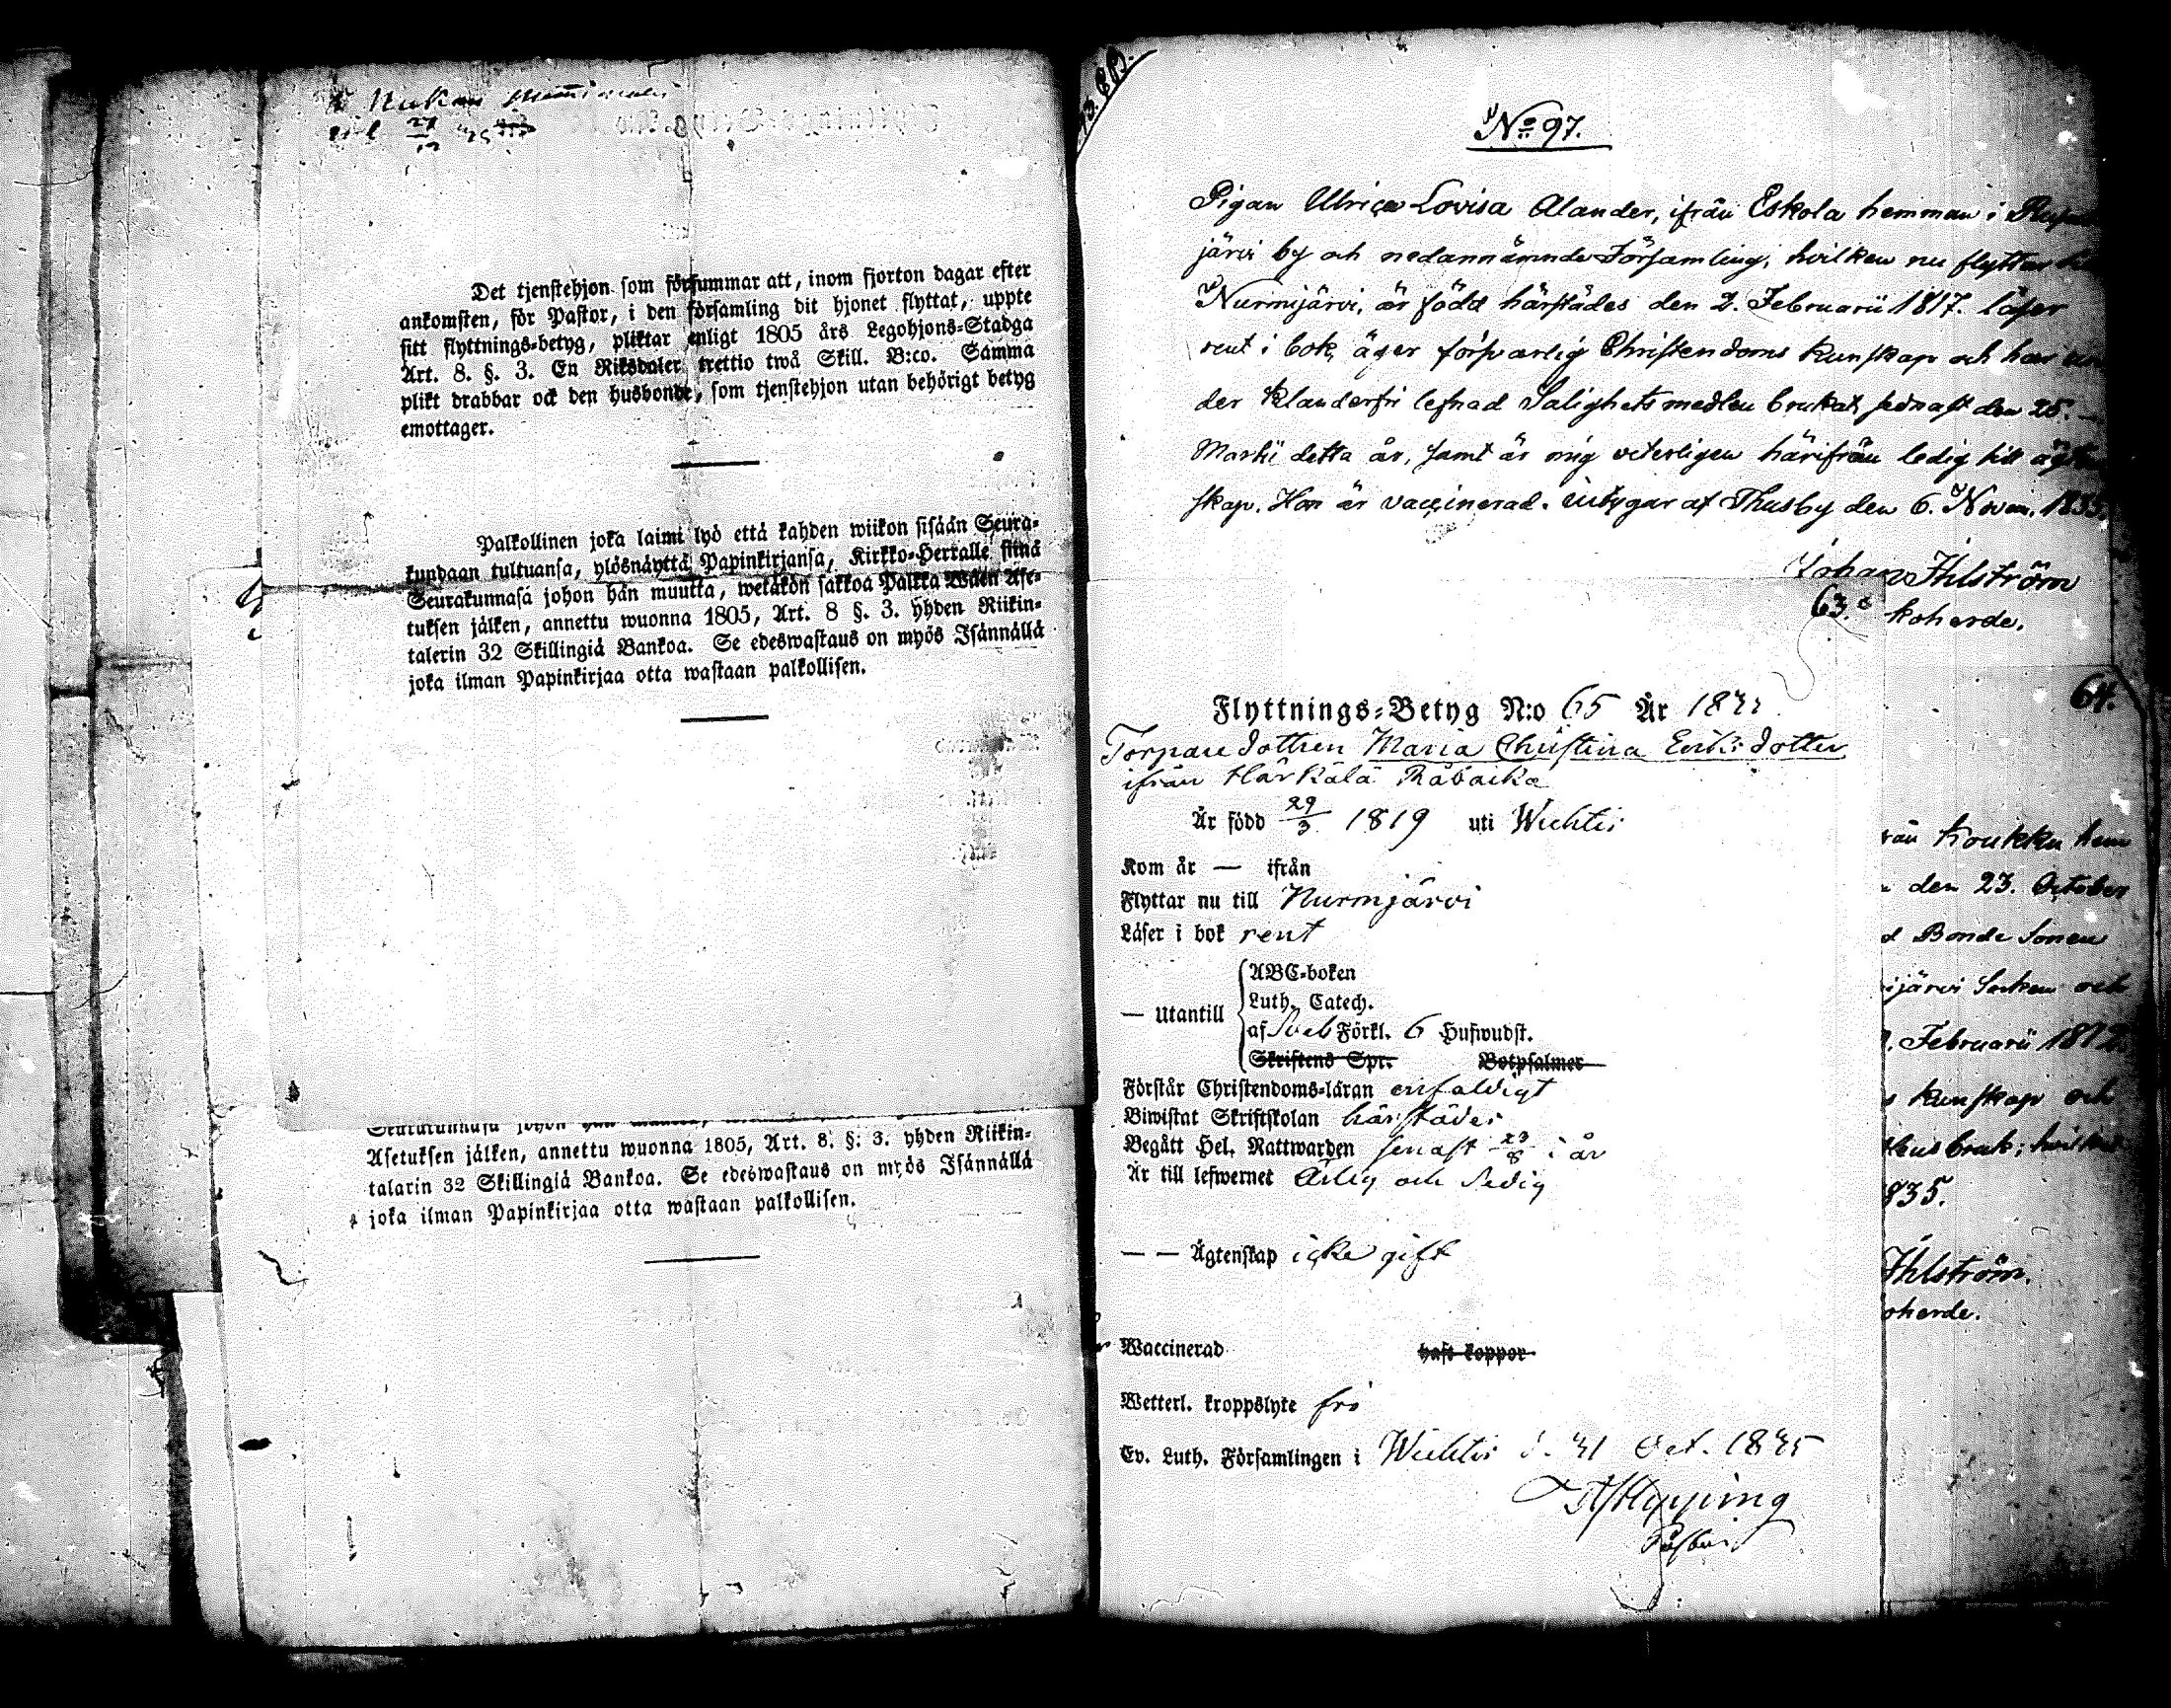 Det tjenstehjon som försummar att, inom fjorton dagar efter
ankomsten, för Pastor, i den församling dit hjonet flyttat, uppte
sitt flyttnings-betyg, pliktar enligt 1805 års Legohjons-Stadga
Art. 8. §. 3. En Riksdaler trettio twå Skill. B:co. Samma
plikt drabbar ock den husbonde, som tjenstehjon utan behörigt betyg
emottager.
Palkollinen joka laimi lyö että kahden wiikon sisään Seura-
kundaan tultuansa, ylösnäyttä Papinkirjansa, Kirkko-Herralle siinä
Seurakunnasa johon hän muutta, wetäkön sakkoa Palkka Wäen Ase-
tuksen jälken, annettu wuonna 1805, Art. 8 §. 3. yhden Riikin-
talerin 32 Skillingiä Bankoa. Se edeswastaus on myös Isännällä
joka ilman Papinkirjaa otta wastaan palkollisen.
Asetuksen jälken, annettu wuonna 1805, Art. 8. §. 3. yhden Riikin-
talarin 32 Skillingiä Bankoa. Se edeswastaus on myös Isännällä
joka ilman Papinkirjaa otta wastaan palkollisen.
No 97.
Pigan Ulrica Lovisa Alander, ifrån Eskola hemman i
järvi by och nedannämnde Församling, hvilken nu flyttar
Nurmijärvi, är född härstädes den 2. Februarii 1817. läser
rent i bok, äger försvarlig Christendoms Kunskap och har un
der klanderfri lefnad Salighetsmedlen brukat sednast den 25.
Martii detta år, samt är mig veterligen härifrån ledig till ägten
skap. Hon är vaccinerad. intygar af Thusby den 6. Novem. 1835.
Johan Ihlström
koherde.
63.
Flyttnings-Betyg N:o 65 År 1835
Torpare dottren Maria Christina Eriksdotter
ifrån Härkälä Råbacka
Är född 29/3 1819 uti Wichtis
Kom år — ifrån
Flyttar nu till Nurmjärvi
Läser i bok rent
— Utantill
ABC-boken
Luth. Catech.
af Sveb Förkl. 6 Hufwudst.
Skriftens Spr. Botpsalmer
Förstår Christendoms-läran enfaldigt
Biwistat Skriftskolan härstädes
Begått Hel. Nattwarden senast 23/8 i år
Är till lefwernet Ärlig och Sedig
— — Ägtenskap icke gift
Waccinerad haft koppor
Wetterl. kroppslyte fri
Ev. Luth. Församlingen i Wichtis d. 31 Oct. 1835
Pastor
64.
rån Koukku hem
den 23. October
d Bonde Sonen
ijärvi Socken och
Februarii 1812.
s Kunskap och
835.
Ihlström.
oherde.